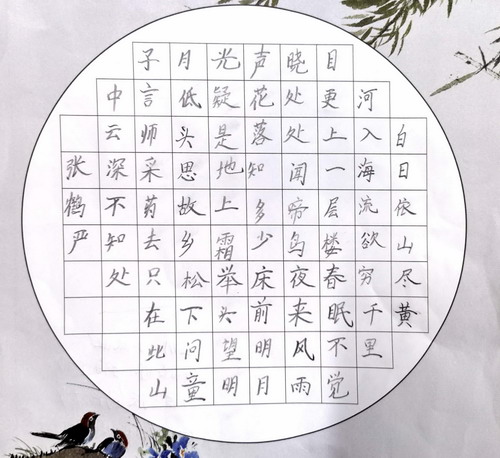 白日依山尽黄
河入海流欲穷千里
目更上一层楼春眠不觉
晓处处闻帝鸟夜来风雨
声花落知多少床前明月
光疑是地上霜举头望明
月低头思故乡松下问童
子言师采药去只在此山
中云深不知处
张鹤严